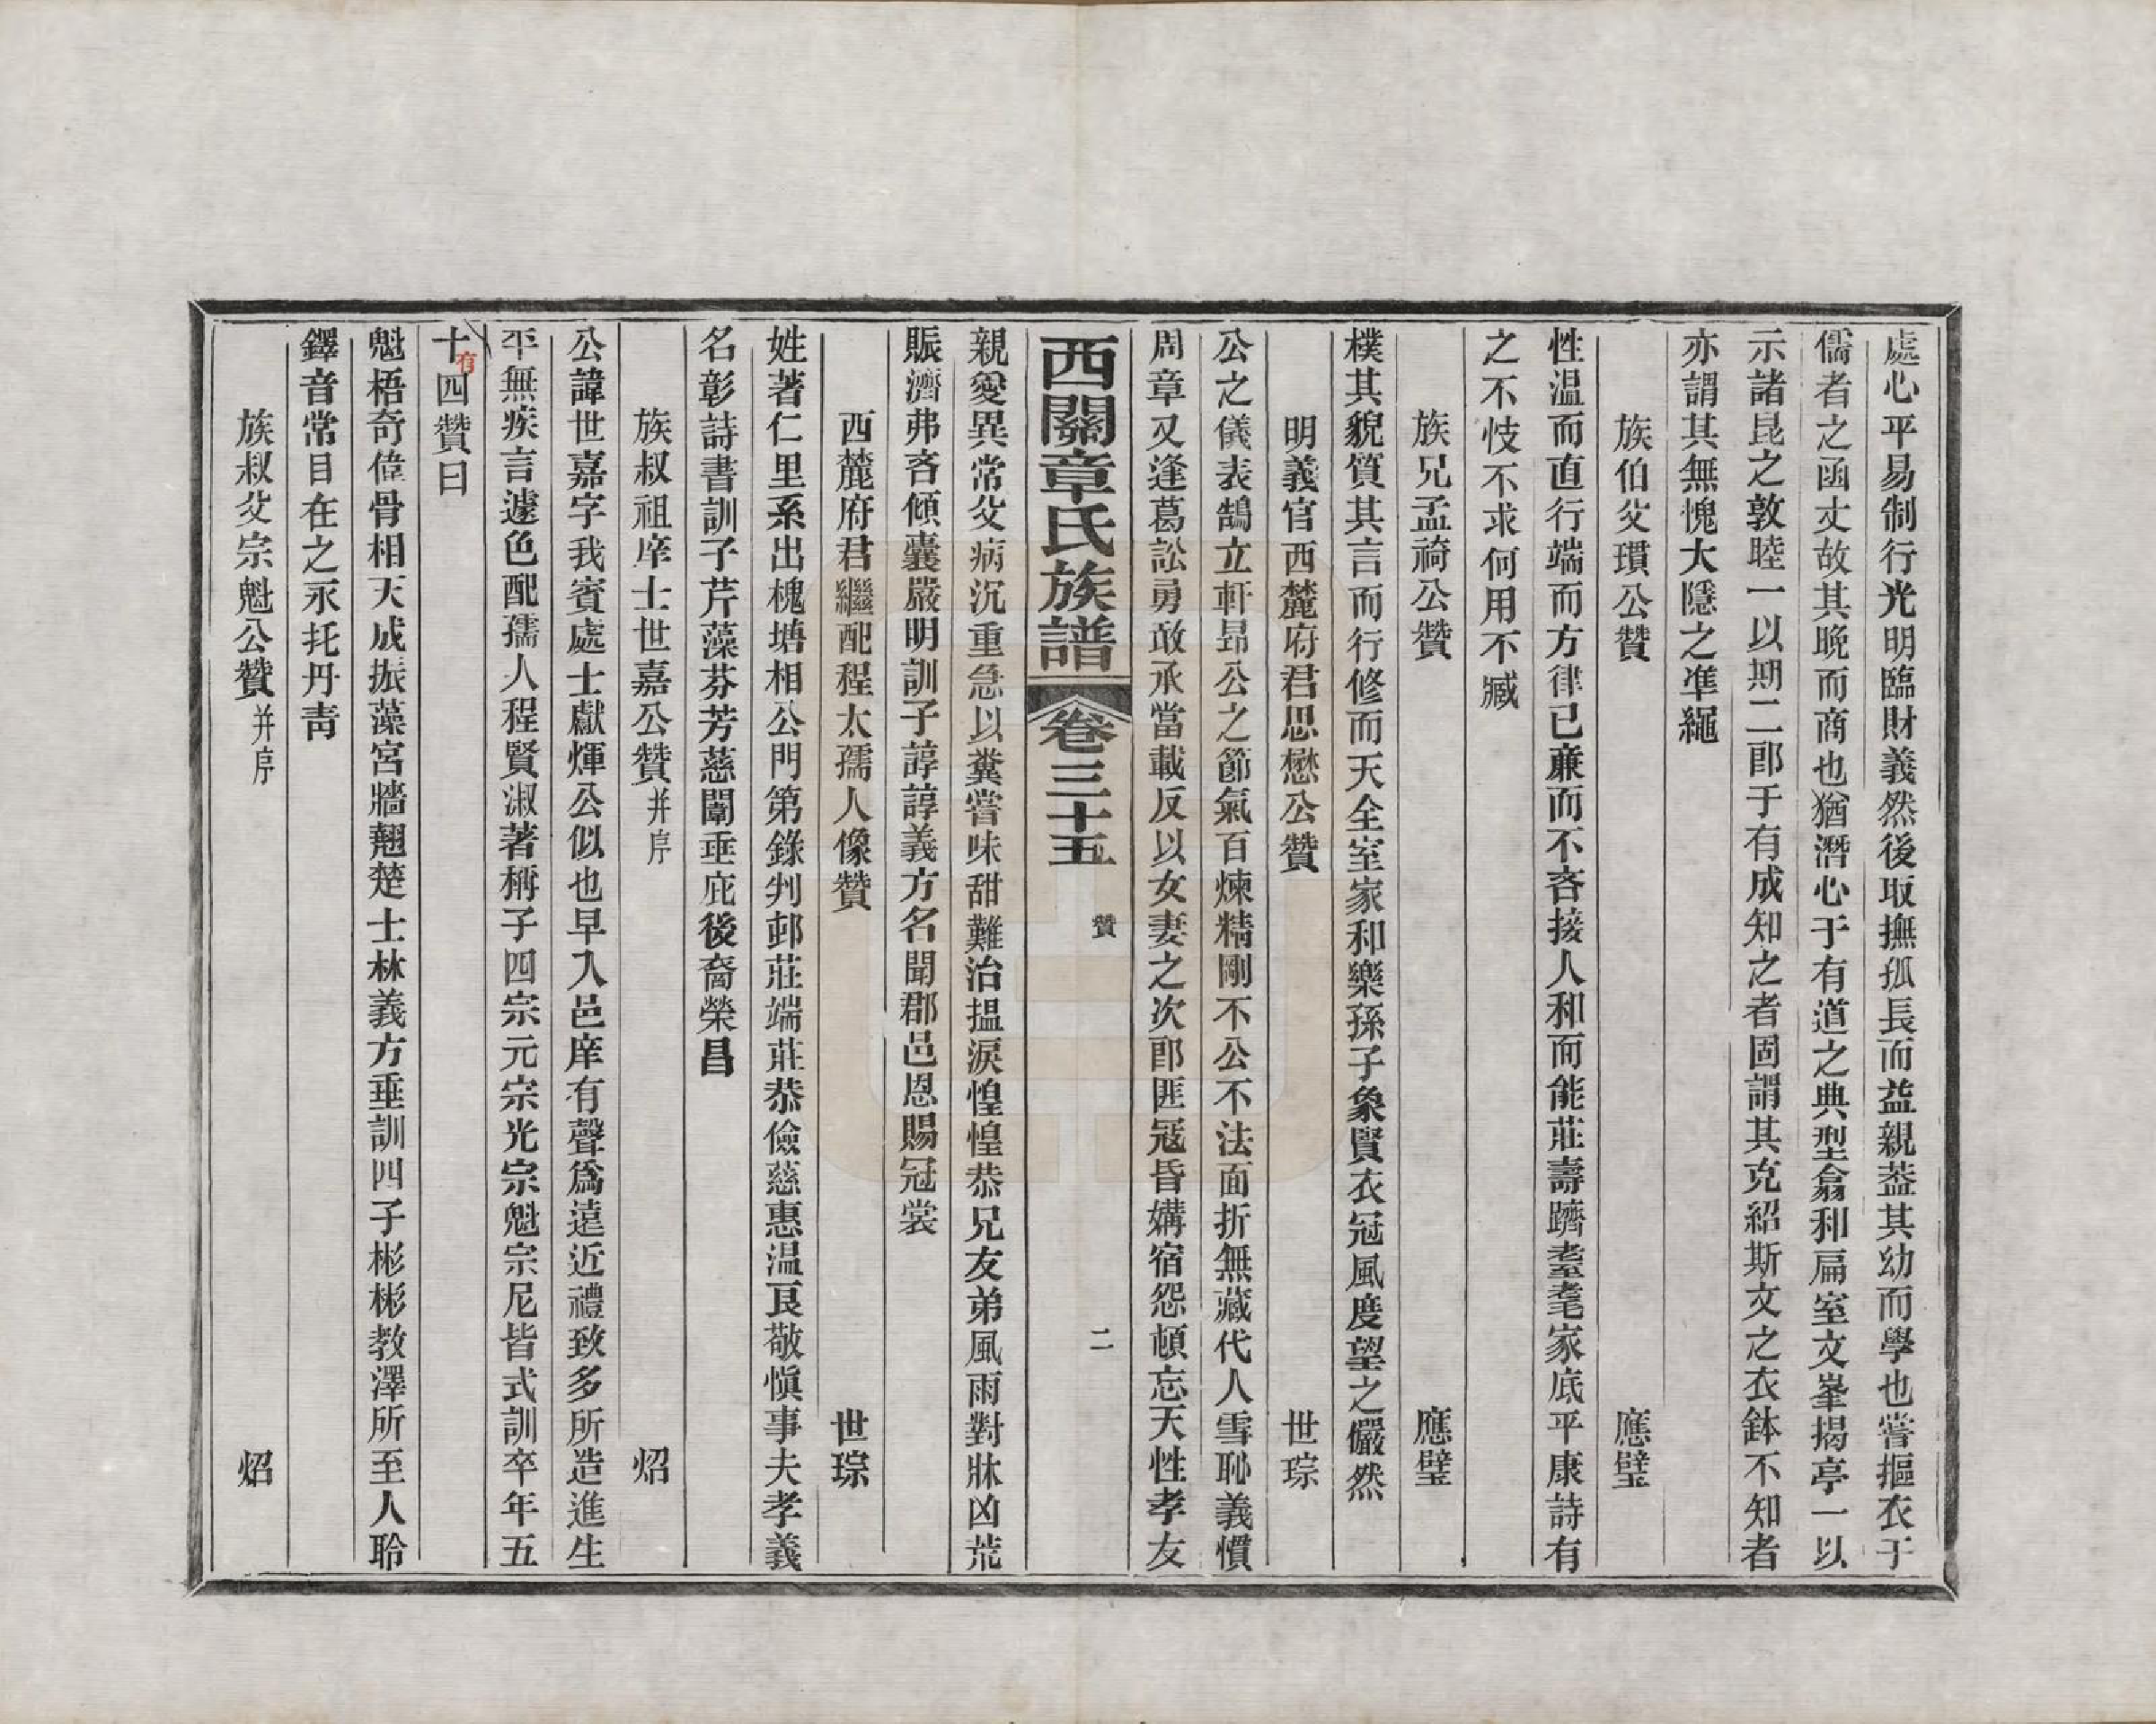 處心平易制行光明臨財義然後取撫孤長而益親葢其幼而學也嘗摳衣于
儒者之函丈故其晚而商也猶潛心于有道之典型翕和扁室文峯揭亭一以
示諸昆之敦睦一以期二郎于有成知之者固謂其克紹斯文之衣鉢不知者
亦謂其無愧大隱之凖繩
族伯父瓆公贊　應璧
性温而直行端而方律已亷而不吝接人和而能莊壽躋耋耄家底平康詩有
之不忮不求何用不臧
族兄孟禞公贊　應璧
樸其貌質其言而行修而天全室家和樂孫子象賢衣冠風度望之儼然
明義官西麓府君思懋公贊　世琮
公之儀表鵠立軒昂公之節氣百煉精剛不公不法面折無藏代人雪恥義慣
周章又逢葛訟勇敢承當載反以女妻之次郎匪寇昏媾宿怨頓忘天性孝友
西關章氏族譜　卷三十五　贊　二
親愛異常父病沉重急以糞嘗味甜難治揾淚惶惶恭兄友弟風雨對牀凶荒
賑濟弗吝傾囊嚴明訓子諄諄義方名聞郡邑恩賜冠裳
西麓府君繼配程太孺人像贊　世琮
姓著仁里系出槐塘相公門第錄判邨莊端莊恭儉慈惠温良敬愼事夫孝義
名彰詩書訓子芹藻芬芳慈闈垂庇後裔榮昌
族叔祖庠士世嘉公贊并序　炤
公諱世嘉字我賓處士獻煇公似也早入邑庠有聲爲遠近禮致多所造進生
平無疾言遽色配孺人程賢淑著稱子四宗元宗光宗魁宗尼皆式訓卒年五
十有四贊曰
魁梧奇偉骨相天成振藻宮牆翹楚士林義方垂訓四子彬彬教澤所至人聆
鐸音常目在之永托丹靑
族叔父宗魁公贊并序　炤